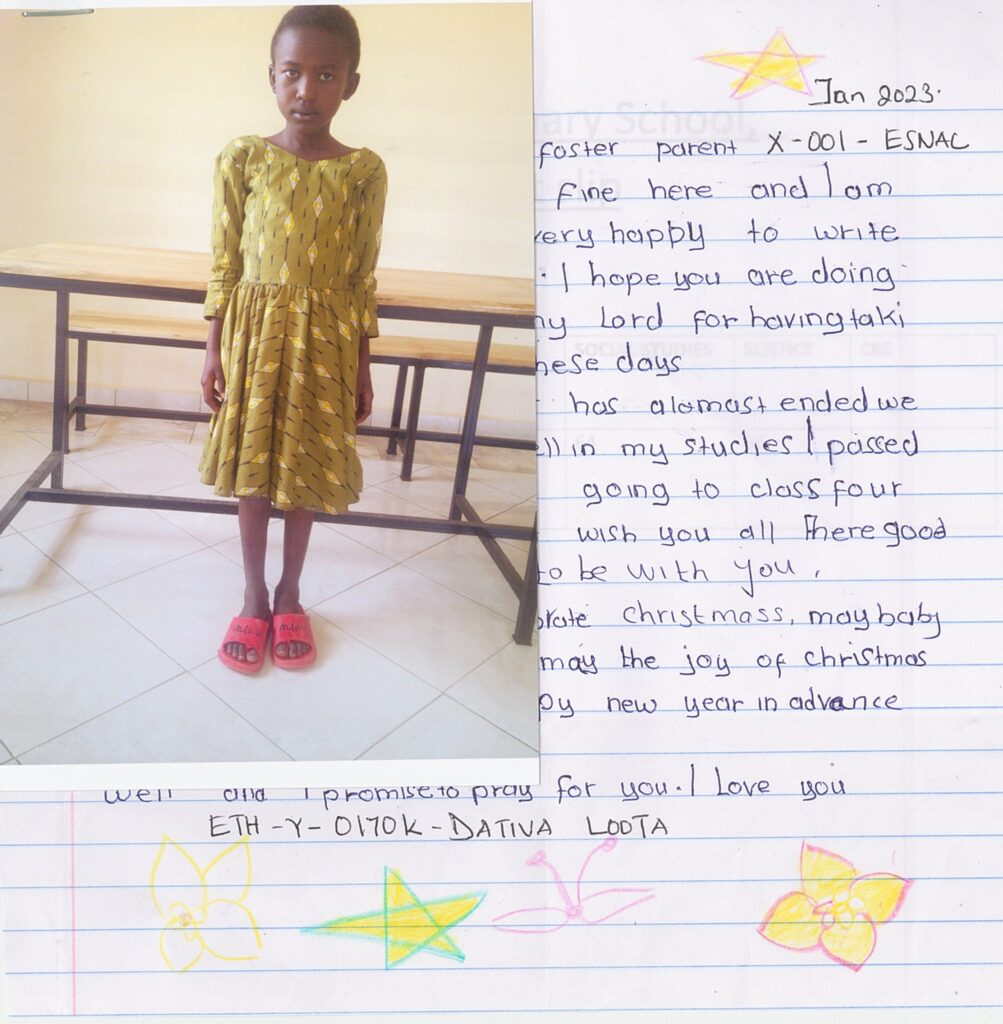 Jan 2023.
foster parent X-001 - ESNAC
fine here and I am
very happy to write
. I hope you are doing
my Lord for having taki
hese days
has alomast ended we
ell in my studies I passed
going to class four
wish you all there good
to be with you,
brate christmass, may baby
may the joy of christmas
py new year in advance
well and I promise to pray for you. I Love you
ETH-Y-0170K-DATIVA LOOTA
ary School
SOCIAL STUDIES SCIENCE CRE